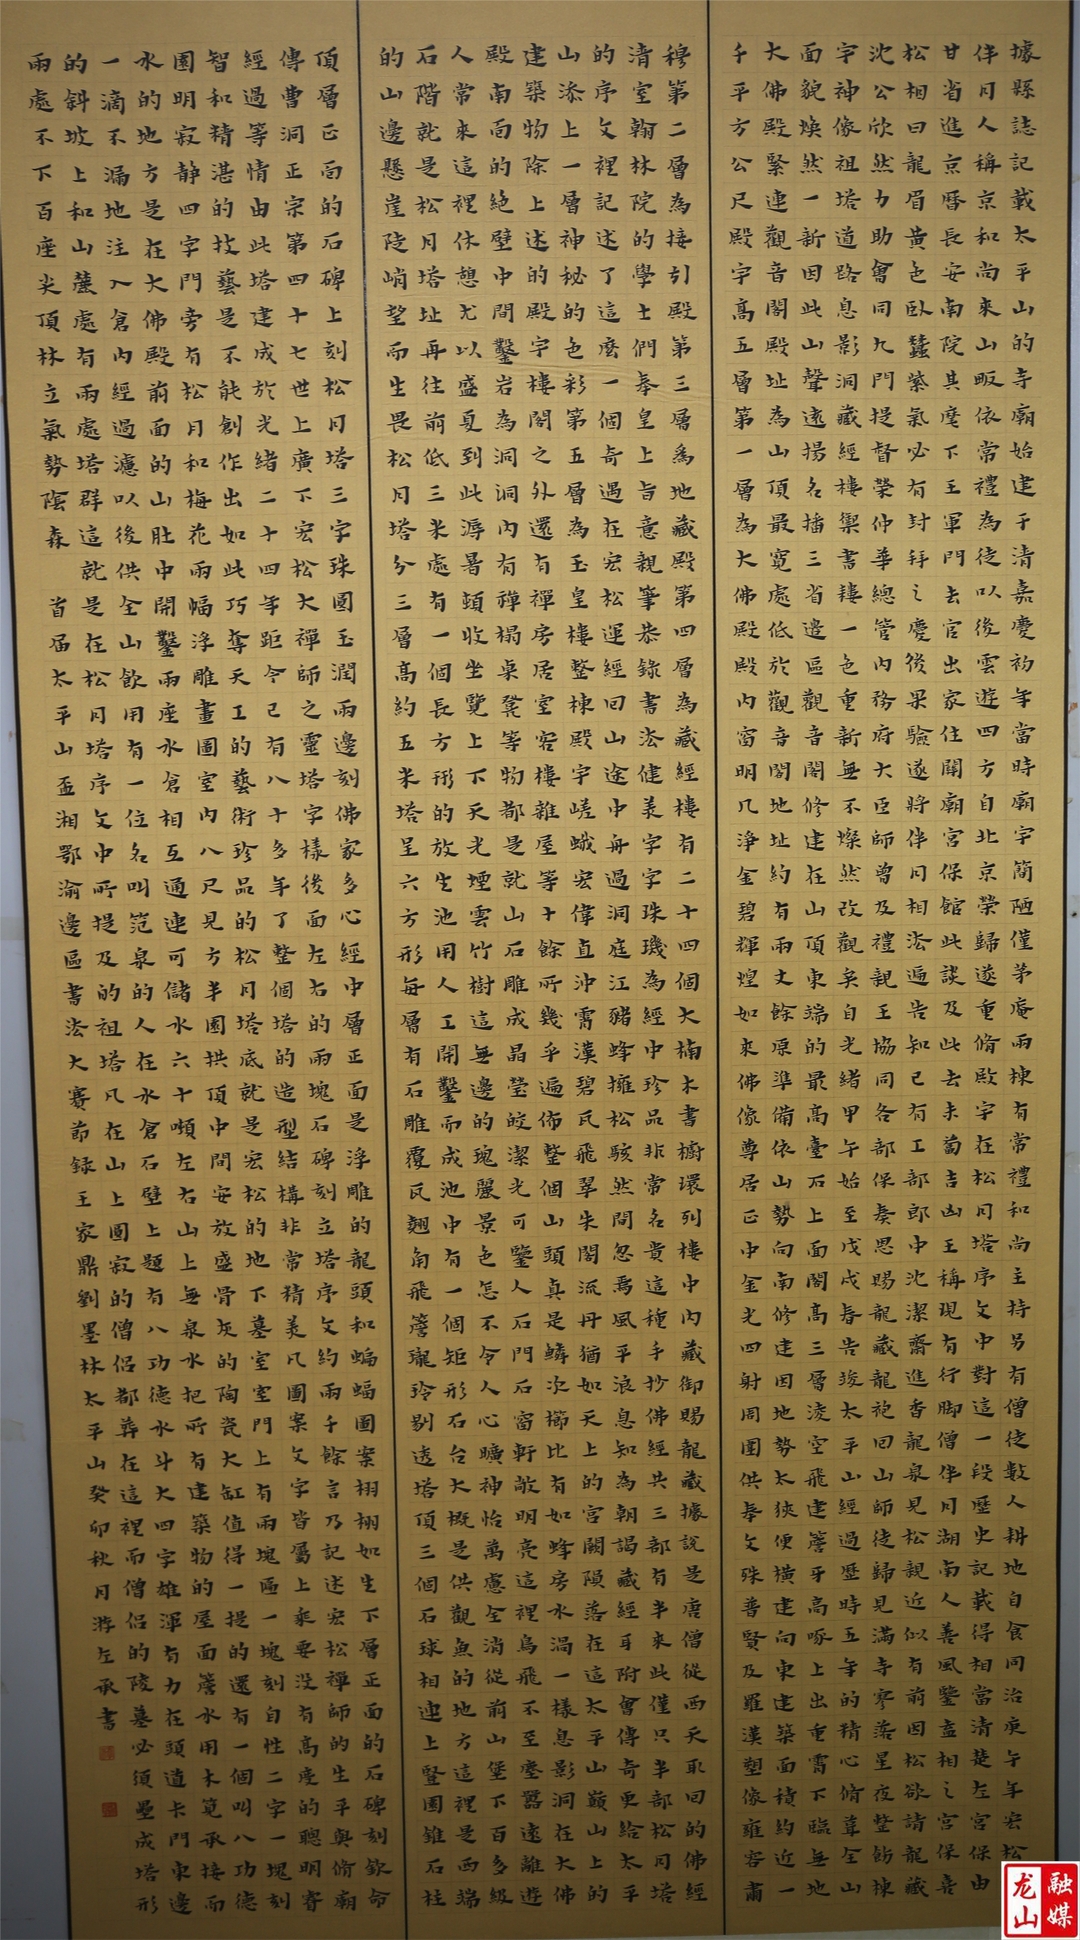 據縣誌記載太平山的寺廟始建于清嘉慶初年當時廟宇簡陋僅茅庵兩棟有常禮和尚主持另有僧徒數人耕地自食同治庚午年宏松
伴月人稱京和尚來山畈依常禮為徒以後雲遊四方自北京榮歸遂重脩殿宇在松月塔序文中對這一段歷史記載得相當清楚左宮保由
甘省進京曆長安南院其麾下王軍門去官出家住關廟宮保館此談及此去未蔔吉凶王稱現有行脚僧伴月湖南人善風鑒盍相之宮保喜
松相曰龍眉黃色臥蠶紫氣必有封拜之慶後果驗遂將伴月相法遍告知已有工部郎中沈潔齋進香龍泉見松親近似有前因松欲請龍藏
沈公欣然力助會同九門提督榮仲華總管內務府大臣師曾及禮親王協同各部保奏思賜龍藏龍袍回山師徒歸見滿寺寥落星夜整飭棟
宇神像祖塔道路息影洞藏經樓禦書樓一色重新無不燦然改觀矣自光緒甲午始至戊戌春告竣太平山經過歷時五年的精心脩葺全山
面貌煥然一新因此山聲遠揚名播三省邊區觀音閣修建在山頂東端的最高臺石上面閣高三層凌空飛建簷牙高啄上出重霄下臨無地
大佛殿緊連觀音閣殿址為山頂最寬處低於觀音閣地址約有兩丈餘原準備依山勢向南修建因地勢太狹便橫建向東建築面積約近一
千平方公尺殿宇高五層第一層為大佛殿殿內窗明几淨金碧輝煌如來佛像尊居正中金光四射周圍供奉文殊普賢及羅漢塑像雍容肅
穆第二層為接引殿第三層為地藏殿第四層為藏經樓有二十四個大楠木書櫥環列樓中內藏御賜龍藏據說是唐僧從西天取回的佛經
清室翰林院的學士們奉皇上旨意親筆恭錄書法健美字字珠璣為經中珍品非常名貴這種手抄佛經共三部有半來此僅只半部松月塔
的序文裡記述了這麼一個奇遇在宏松運經回山途中舟過洞庭江豬蜂擁松駭然間忽焉風平浪息知為朝謁藏經耳附會傳奇更給太平
山添上一層神秘的色彩第五層為玉皇樓整棟殿宇嵯峨宏偉直沖霄漢碧瓦飛翠朱閣流丹猶如天上的宮闕隕落在這太平山巔山上的
建築物除上述的殿宇樓閣之外還有禪房居室客樓雜屋等十餘所幾乎遍佈整個山頭真是鱗次櫛比有如蜂房水渦一樣息影洞在大佛
殿南面的絕壁中間鑿岩為洞洞內有禪榻桌凳等物都是就山石雕成晶瑩皎潔光可鑒人石門石窗軒敞明亮這裡鳥飛不至塵囂遠離遊
人常來這裡休憩尤以盛夏到此溽暑頓收坐覽上下天光煙雲竹樹這無邊的瑰麗景色怎不令人心曠神怡萬慮全消從前山堡下百多級
石階就是松月塔址再往前低三米處有一個長方形的放生池用人工開鑿而成池中有一個矩形石台大概是供觀魚的地方這裡是西端
的山邊懸崖陡峭望而生畏松月塔分三層高約五米塔呈六方形每層有石雕覆瓦翹角飛簷瓏玲剔透塔頂三個石球相連上豎圓錐石柱
頂層正面的石碑上刻松月塔三字珠圓玉潤兩邊刻佛家多心經中層正面是浮雕的龍頭和蝙蝠圖案栩栩如生下層正面的石碑刻欽命
傳曹洞正宗第四十七世上廣下宏松大禪師之靈塔字樣後面左右的兩塊石碑刻立塔序文約兩千餘言乃記述宏松禪師的生平與脩廟
經過等情由此塔建成於光緒二十四年距今已有八十多年了整個塔的造型結構非常精美凡圖案文字皆屬上乘要沒有高度的聰明睿
智和精湛的技藝是不能創作出如此巧奪天工的藝術珍品的松月塔底就是宏松的地下墓室室門上有兩塊匾一塊刻自性二字一塊刻
圓明寂靜四字門旁有松月和梅花兩幅浮雕畫圖室內八尺見方半圓拱頂中間安放盛骨灰的陶瓷大缸值得一提的還有一個叫八功德
水的地方是在大佛殿前面的山肚中開鑿兩座水倉相互通連可儲水六十噸左右山上無泉水把所有建築物的屋面簷水用木筧承接而
一滴不漏地注入倉內經過濾以後供全山飲用有一位名叫范泉的人在水倉石壁上題有八功德水斗大四字雄渾有力在頭道卡門東邊
的斜坡上和山麓處有兩處塔群這就是在松月塔序文中所提及的祖塔凡在山上圓寂的僧侶都葬在這裡而僧侶的陵墓必須壘成塔形
兩處不下百座尖頂林立氣勢陰森 首屆太平山盃湘鄂渝邊區書法大賽節錄王家鼎劉墨林太平山癸卯秋月游左承書
龙山融媒